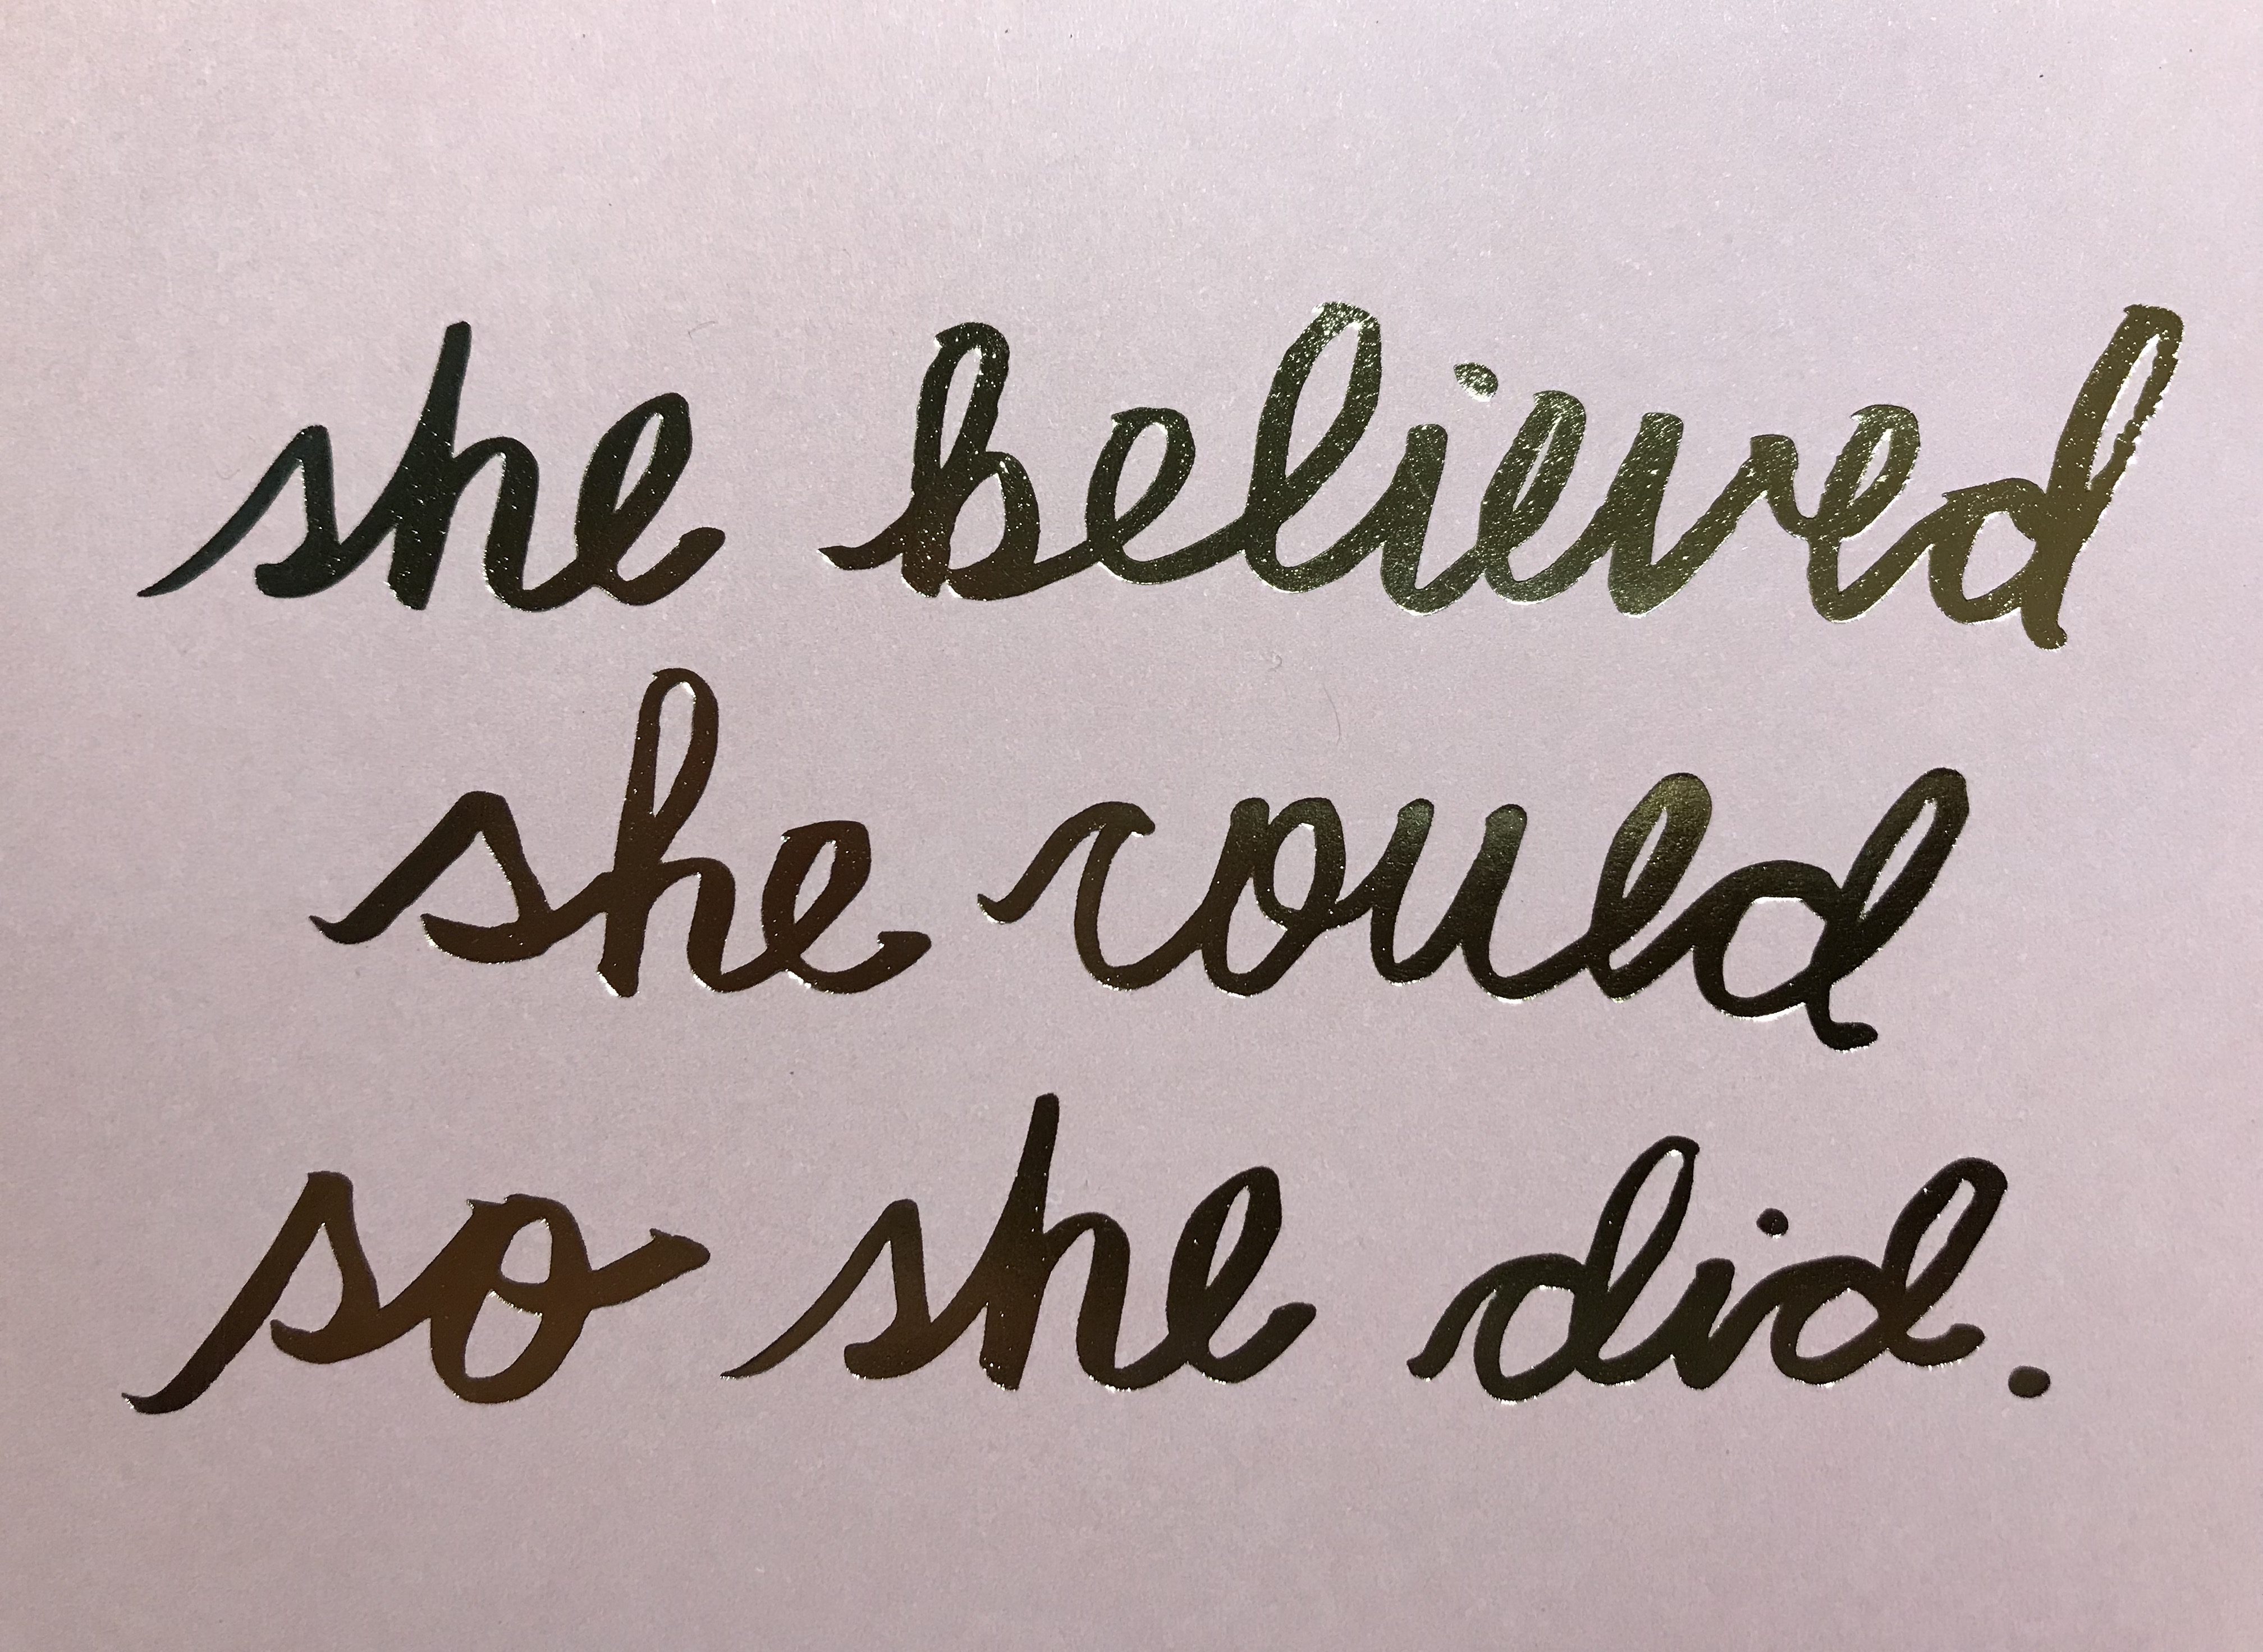 she believed
she could
so she did.